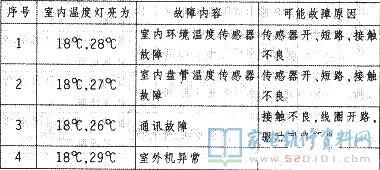 序号 室内温度灯亮为 故障内容 可能故障原因
1 18℃,28℃ 室内环境温度传感器故障 传感器开、短路,接触不良
2 18℃,27℃ 室内盘管温度传感器故障 传感器开、短路,接触不良
3 18℃,26℃ 通讯故障 接触不良,线圈开路,
4 18℃,29℃ 室外机异常
家电维修资料网
www.520101.com